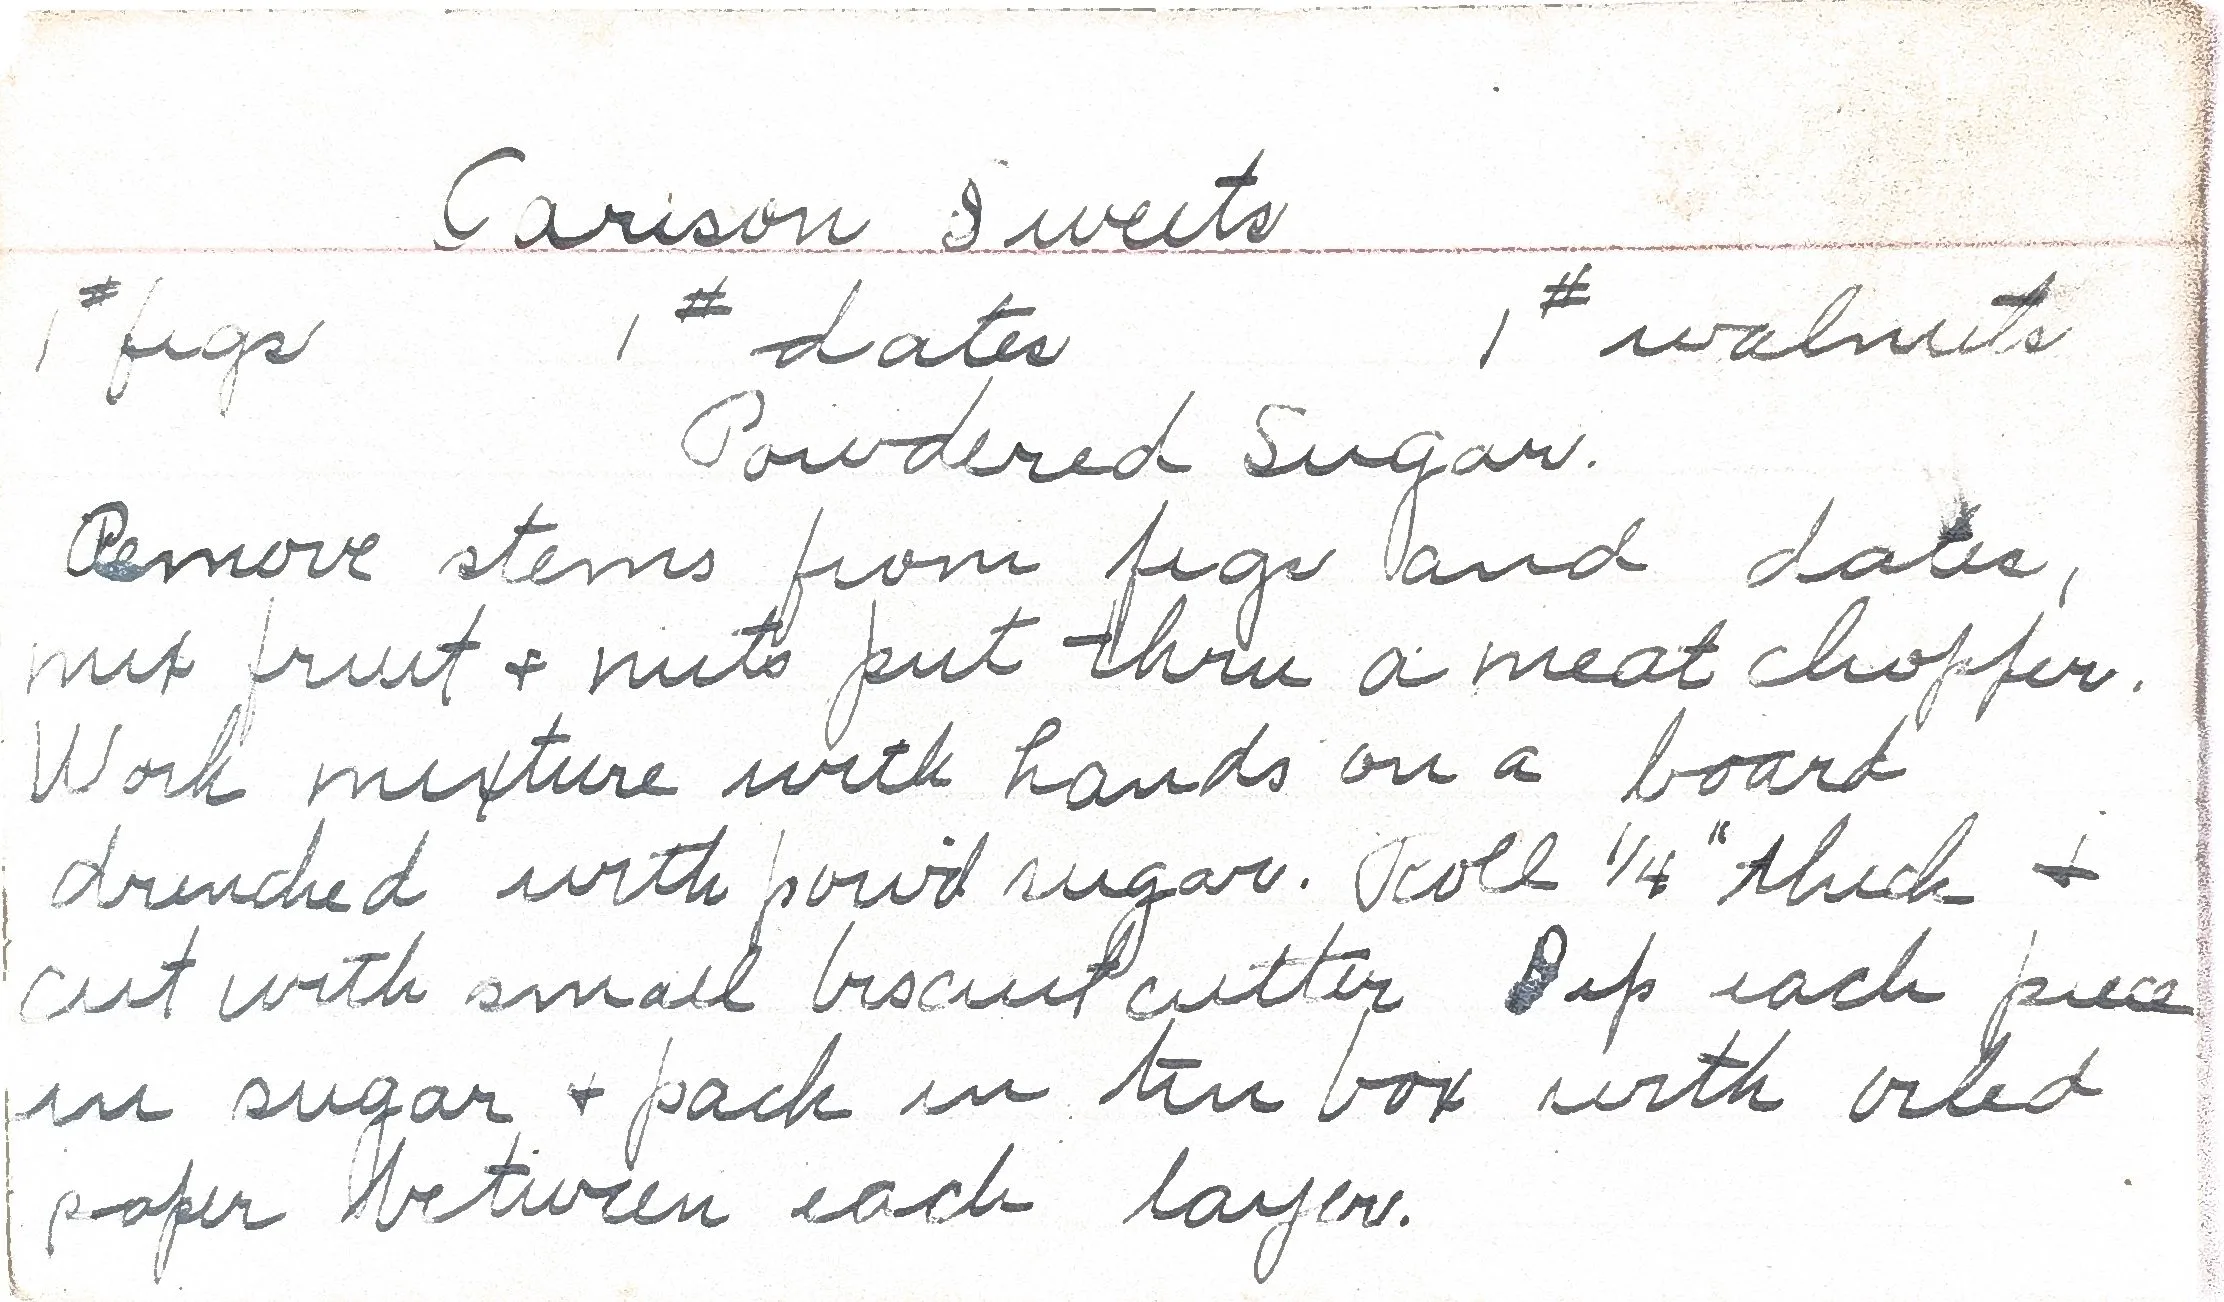 Carison Sweets
1# figs 1# dates 1# walnuts
Powdered Sugar.
Remove stems from figs and dates,
mix fruit + nuts put thru a meat chopper.
Work mixture with hands on a board
drenched with pow'd sugar. Roll 1/4" thick +
cut with small biscuit cutter Dip each piece
in sugar + pack in tin box with oiled
paper between each layer.